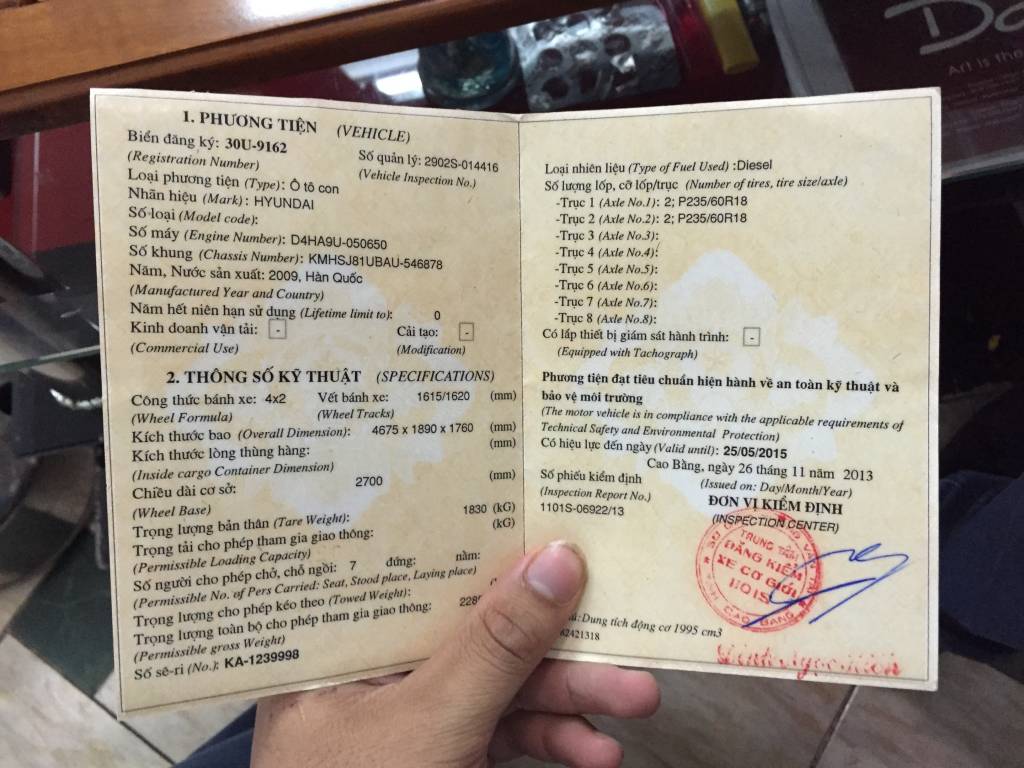 1. PHƯƠNG TIỆN (VEHICLE)
Biển đăng ký: 30U-9162
(Registration Number)
Số quản lý: 2902S-014416
(Vehicle Inspection No.)
Loại phương tiện (Type): Ô tô con
Nhãn hiệu (Mark): HYUNDAI
Số loại (Model code):
Số máy (Engine Number): D4HA9U-050650
Số khung (Chassis Number): KMHSJ81UBAU-546878
Năm, Nước sản xuất: 2009, Hàn Quốc
(Manufactured Year and Country)
Năm hết niên hạn sử dụng (Lifetime limit to): 0
Kinh doanh vận tải: - Cải tạo: -
(Commercial Use) (Modification)
2. THÔNG SỐ KỸ THUẬT (SPECIFICATIONS)
Công thức bánh xe: 4x2 Vết bánh xe: 1615/1620 (mm)
(Wheel Formula) (Wheel Tracks)
Kích thước bao (Overall Dimension): 4675 x 1890 x 1760 (mm)
Kích thước lòng thùng hàng: (mm)
(Inside cargo Container Dimension)
Chiều dài cơ sở: 2700 (mm)
(Wheel Base)
Trọng lượng bản thân (Tare Weight): 1830 (kG)
Trọng tải cho phép tham gia giao thông: (kG)
(Permissible Loading Capacity)
Số người cho phép chở, chỗ ngồi: 7 đứng: nằm:
(Permissible No. of Pers Carried: Seat, Stood place, Laying place)
Trọng lượng cho phép kéo theo (Towed Weight):
Trọng lượng toàn bộ cho phép tham gia giao thông:
(Permissible gross Weight)
Số sê-ri (No.): KA-1239998
Loại nhiên liệu (Type of Fuel Used) :Diesel
Số lượng lốp, cỡ lốp/trục (Number of tires, tire size/axle)
-Trục 1 (Axle No.1): 2; P235/60R18
-Trục 2 (Axle No.2): 2; P235/60R18
-Trục 3 (Axle No.3):
-Trục 4 (Axle No.4):
-Trục 5 (Axle No.5):
-Trục 6 (Axle No.6):
-Trục 7 (Axle No.7):
-Trục 8 (Axle No.8):
Có lắp thiết bị giám sát hành trình: -
(Equipped with Tachograph)
Phương tiện đạt tiêu chuẩn hiện hành về an toàn kỹ thuật và
bảo vệ môi trường
(The motor vehicle is in compliance with the applicable requirements of
Technical Safety and Environmental Protection)
Có hiệu lực đến ngày (Valid until): 25/05/2015
Cao Bằng, ngày 26 tháng 11 năm 2013
(Issued on: Day/Month/Year)
Số phiếu kiểm định
(Inspection Report No.)
1101S-06922/13
ĐƠN VỊ KIỂM ĐỊNH
(INSPECTION CENTER)
TRUNG TÂM
ĐĂNG KIỂM
XE CƠ GIỚI
1101S
CAO BẰNG
Dung tích động cơ 1995 cm3
62421318
Art is the